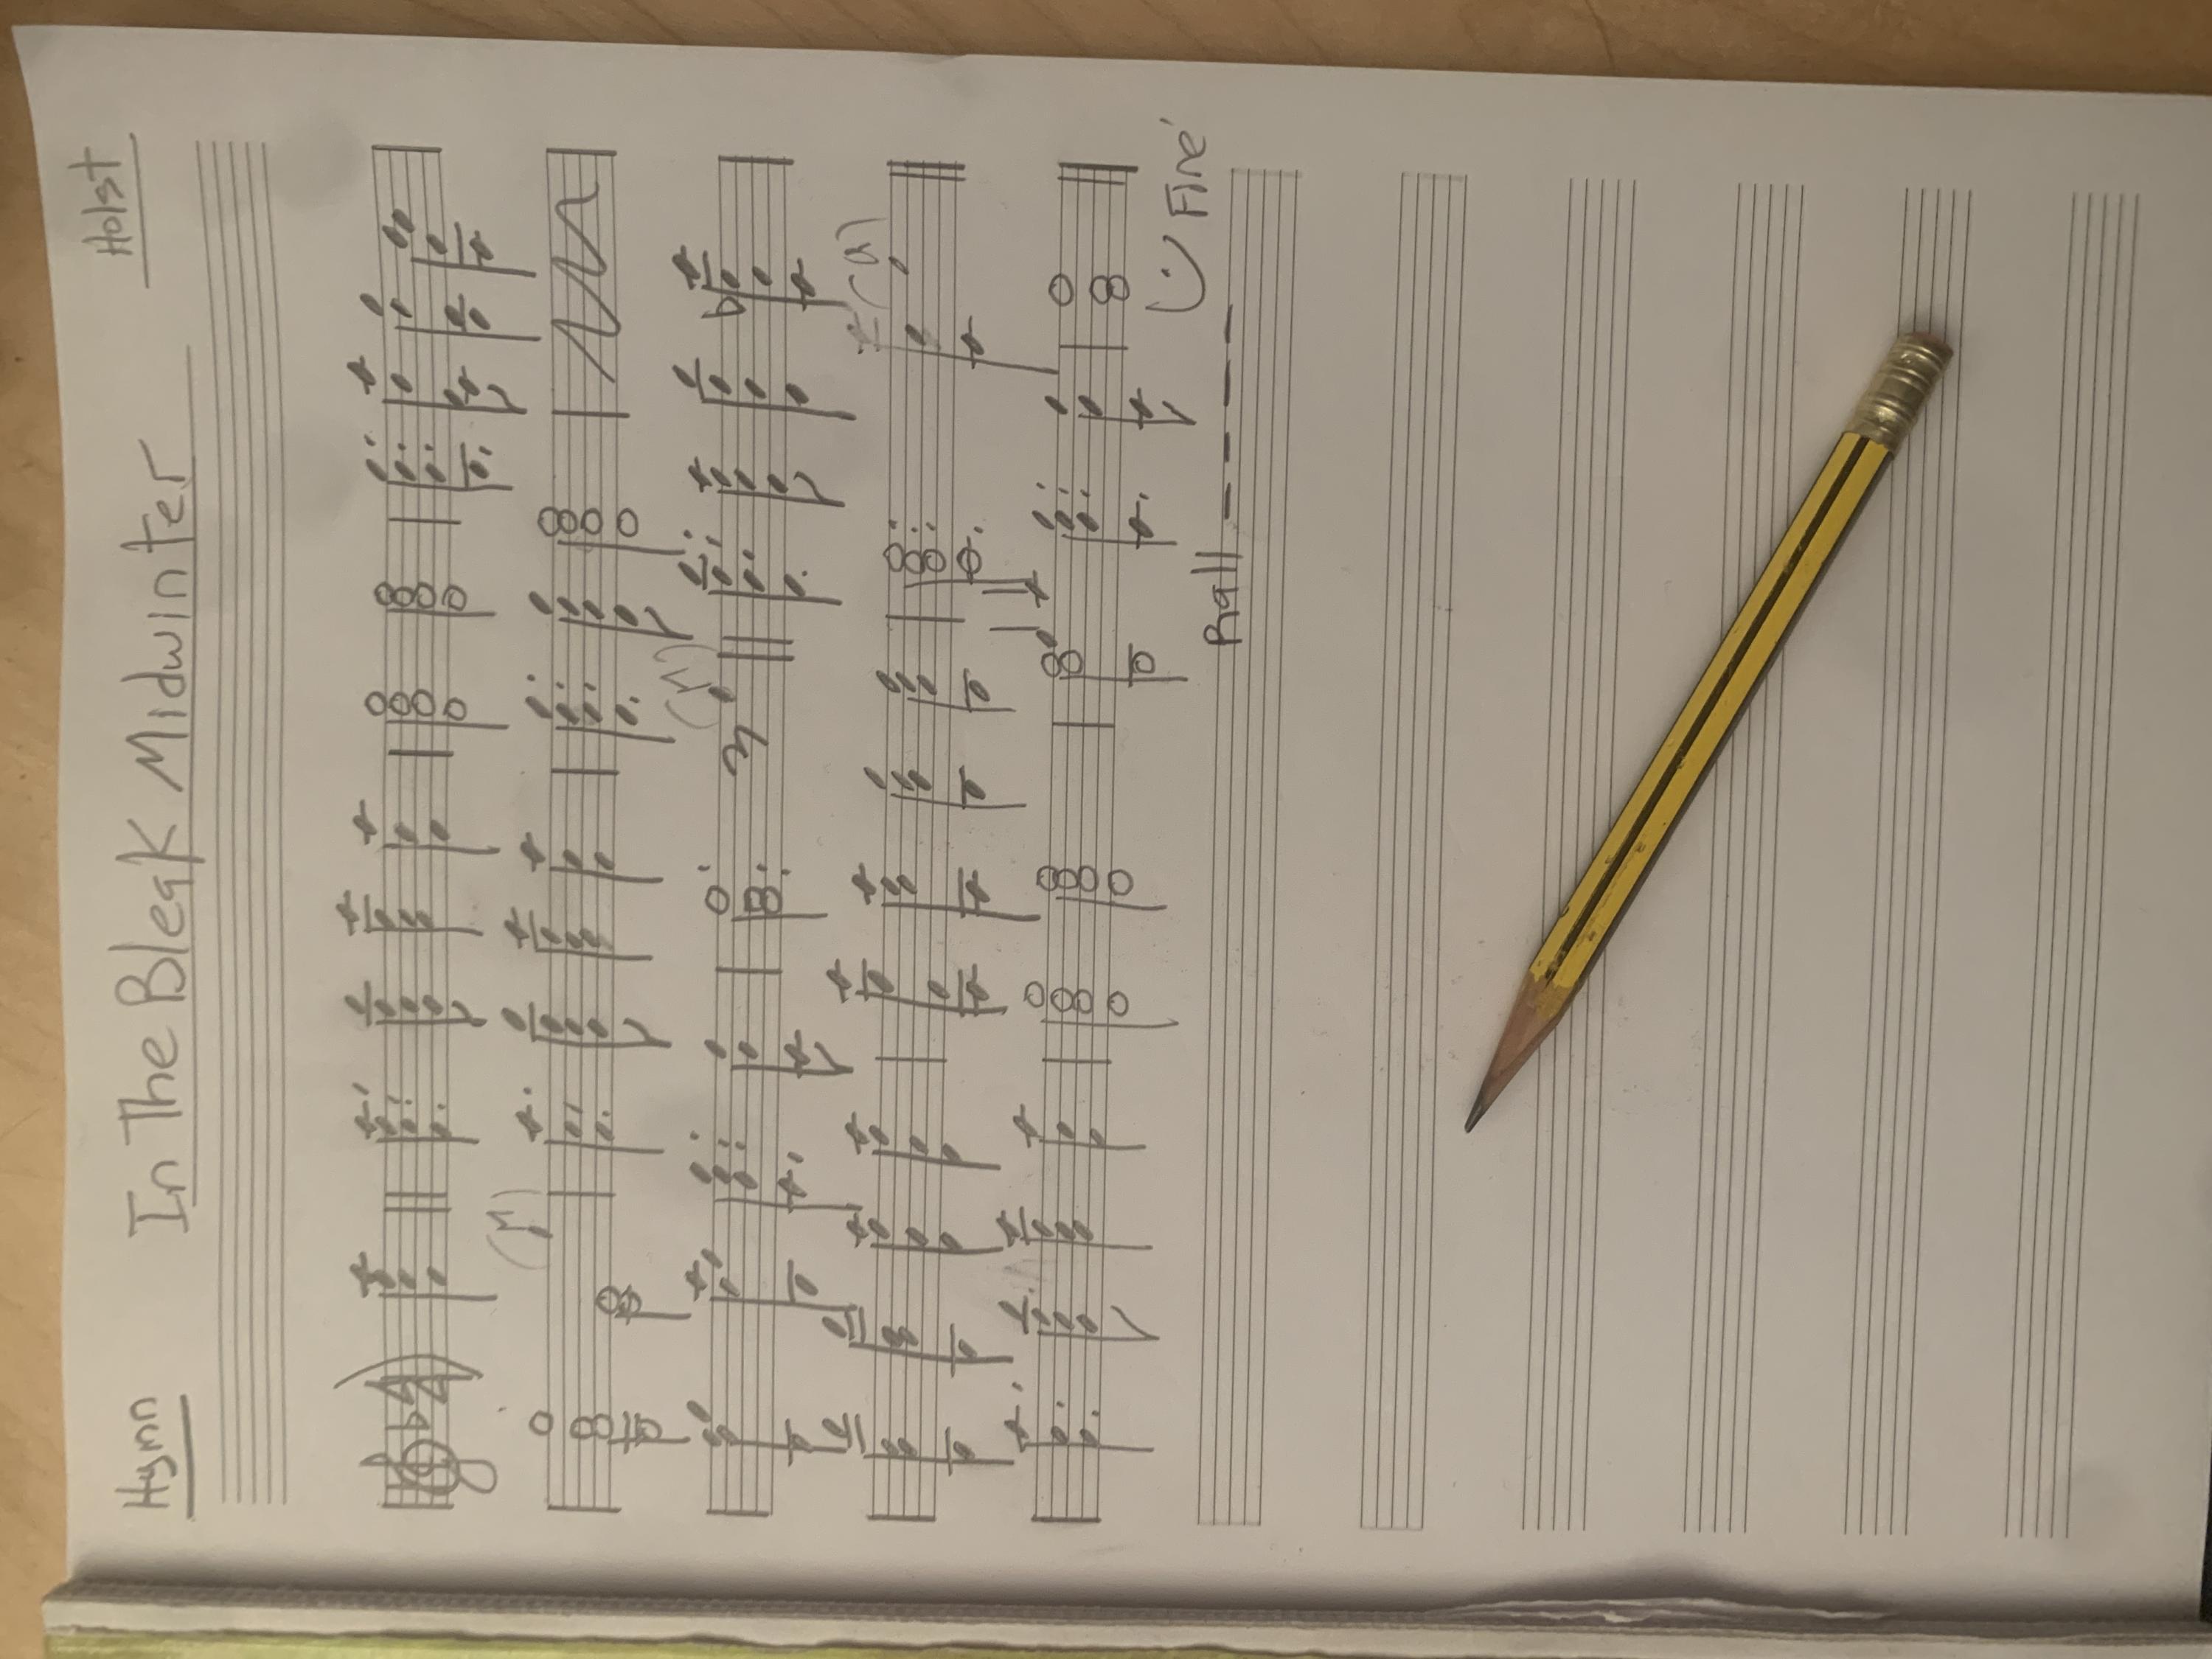 Hymn In The Bleak Midwinter Holst
Rall - - - - - Fine